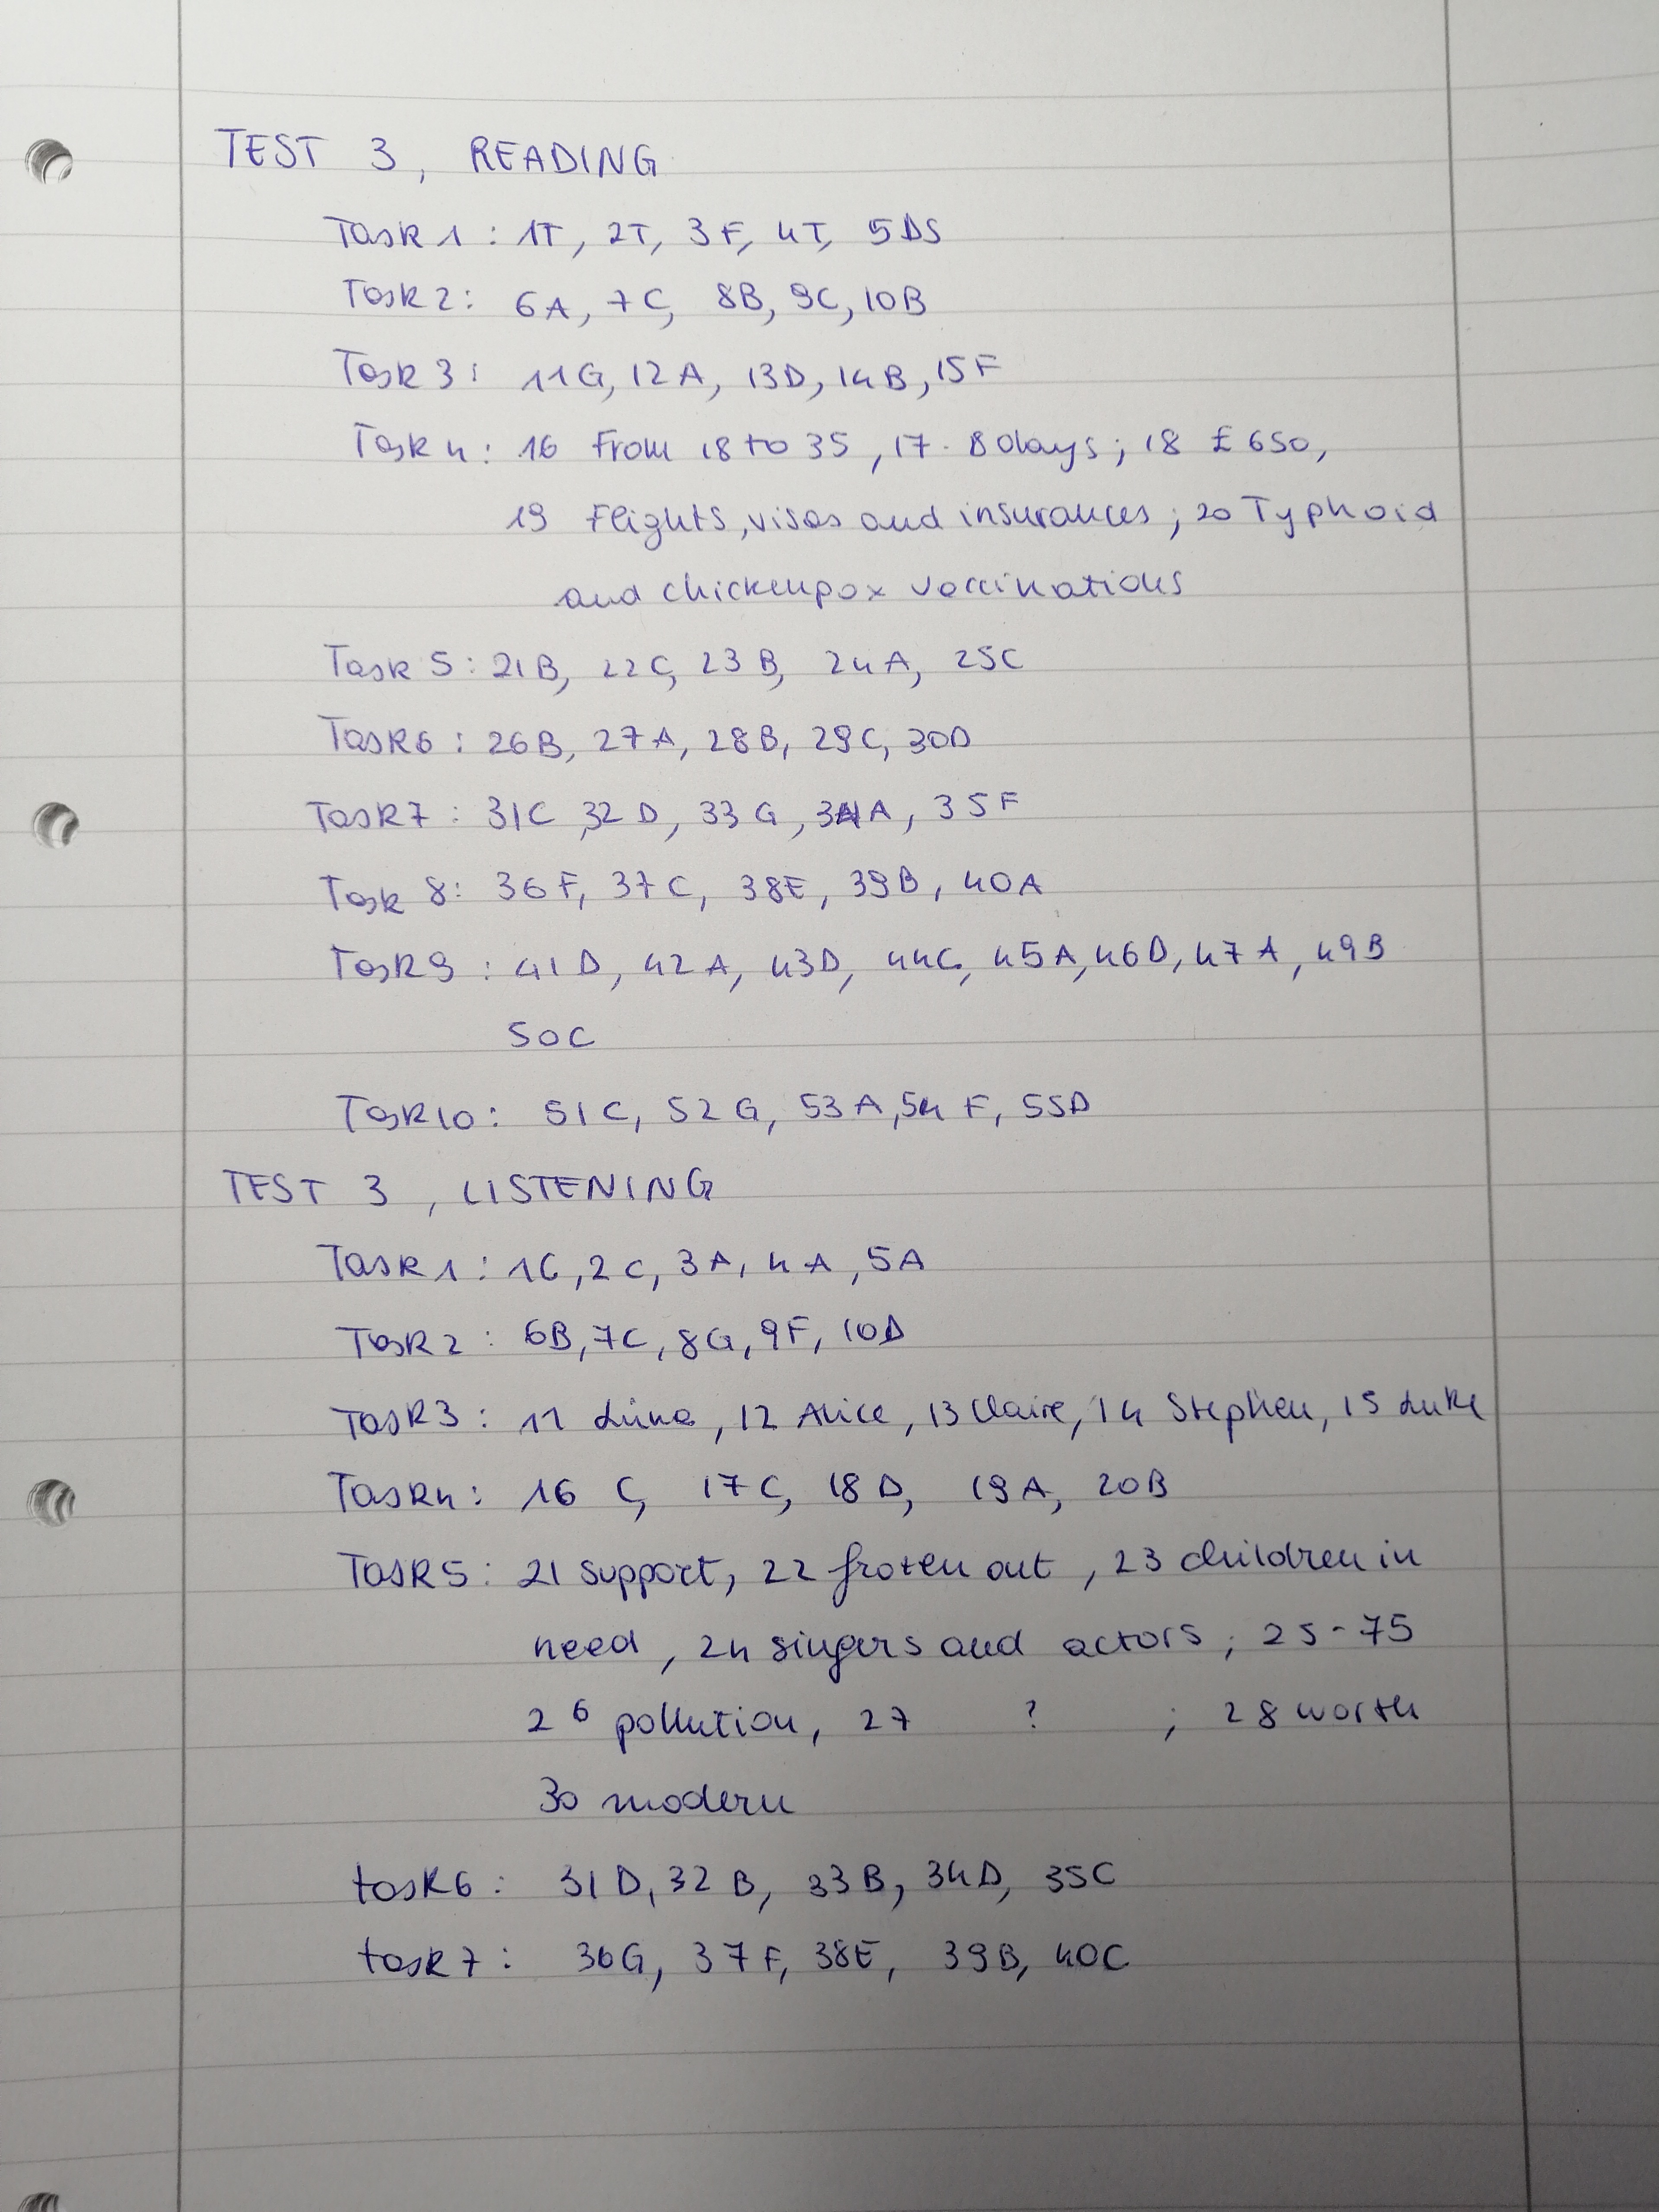 TEST 3, READING
Task 1: 1T, 2T, 3F, 4T, 5DS
Task 2: 6A, 7C, 8B, 9C, 10B
Task 3: 11G, 12A, 13D, 14B, 15F
Task 4: 16 From 18 to 35, 17. 8 days; 18 £650,
19 Flights, visas and insurances; 20 Typhoid
and chickenpox vaccinations
Task 5: 21B, 22C, 23B, 24A, 25C
Task 6: 26B, 27A, 28B, 29C, 30D
Task 7: 31C, 32D, 33G, 34A, 35F
Task 8: 36F, 37C, 38E, 39B, 40A
Task 9: 41D, 42A, 43D, 44C, 45A, 46D, 47A, 49B
50C
Task 10: 51C, 52G, 53A, 54F, 55D
TEST 3, LISTENING
Task 1: 1C, 2C, 3A, 4A, 5A
Task 2: 6B, 7C, 8G, 9F, 10D
Task 3: 11, 12 Alice, 13 Claire, 14 Stephen, 15 Luke
Task 4: 16 C, 17C, 18D, 19A, 20B
Task 5: 21 support, 22 frozen out, 23 children in
need, 24 singers and actors; 25-75
26 pollution, 27 ? ; 28 worth
30 modern
task 6: 31D, 32B, 33B, 34D, 35C
task 7: 36G, 37F, 38E, 39B, 40C